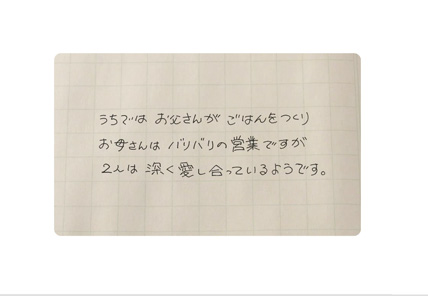 うちでは お父さんが ごはんをつくり
お母さんは バリバリの営業ですが
2人は 深く愛し合っているようです。